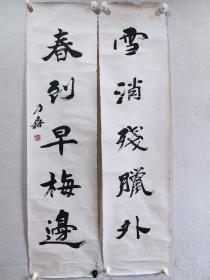 雪消殘臘外
春到早梅邊